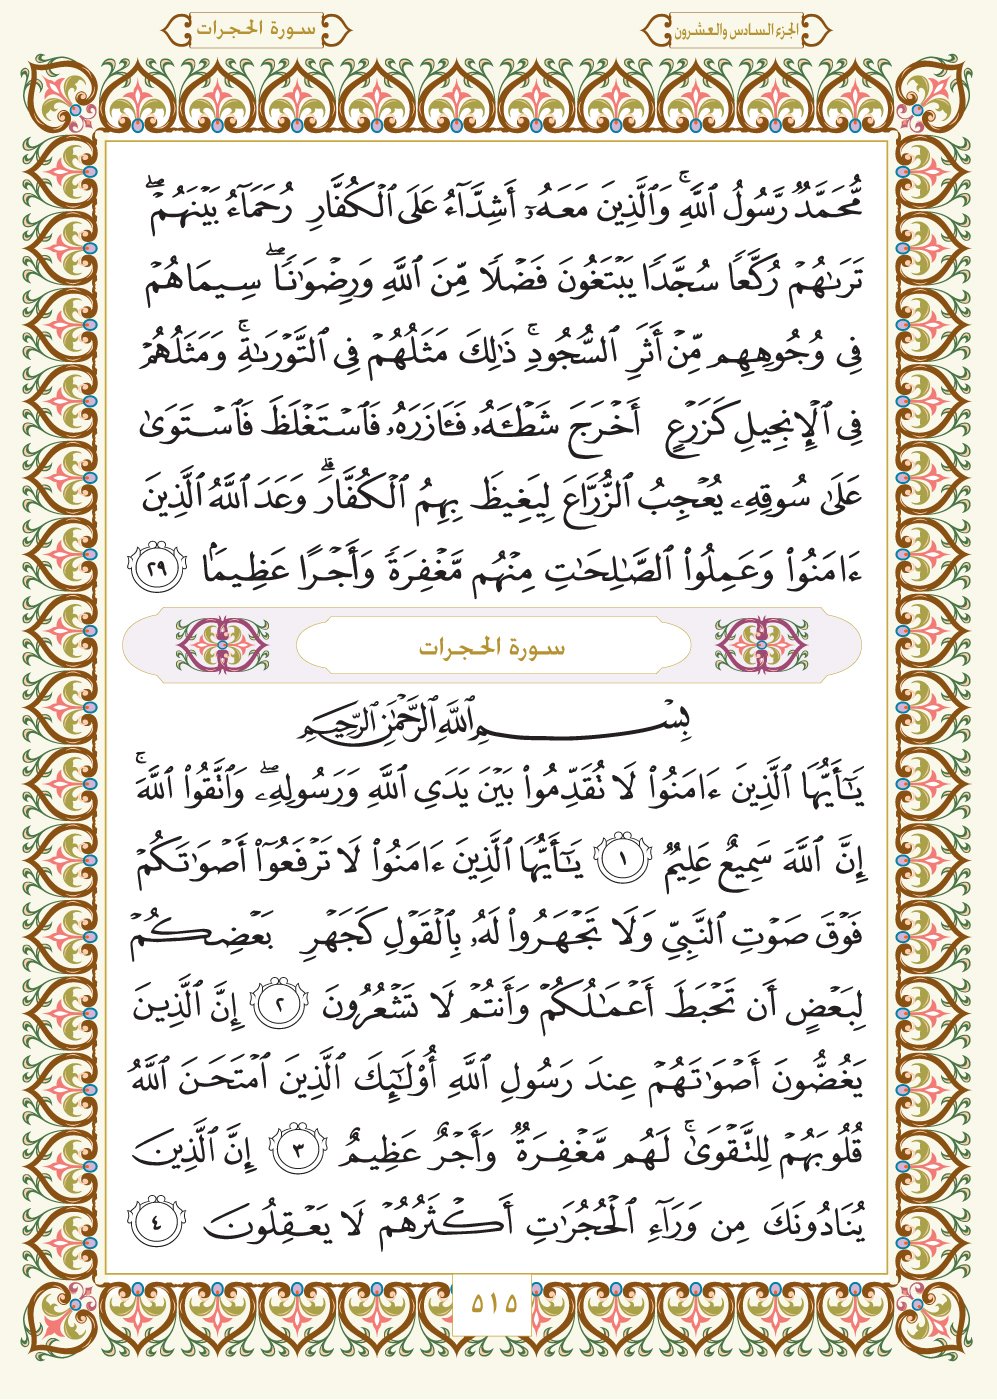 الجزء السادس والعشرون
سورة الحجرات
مُّحَمَّدٌ رَّسُولُ ٱللَّهِۚ وَٱلَّذِينَ مَعَهُۥٓ أَشِدَّآءُ عَلَى ٱلْكُفَّارِ رُحَمَآءُ بَيْنَهُمْۖ
تَرَىٰهُمْ رُكَّعًا سُجَّدًا يَبْتَغُونَ فَضْلًا مِّنَ ٱللَّهِ وَرِضْوَٰنًاۖ سِيمَاهُمْ
فِى وُجُوهِهِم مِّنْ أَثَرِ ٱلسُّجُودِۚ ذَٰلِكَ مَثَلُهُمْ فِى ٱلتَّوْرَىٰةِۚ وَمَثَلُهُمْ
فِى ٱلْإِنجِيلِ كَزَرْعٍ أَخْرَجَ شَطْـَٔهُۥ فَـَٔازَرَهُۥ فَٱسْتَغْلَظَ فَٱسْتَوَىٰ
عَلَىٰ سُوقِهِۦ يُعْجِبُ ٱلزُّرَّاعَ لِيَغِيظَ بِهِمُ ٱلْكُفَّارَۗ وَعَدَ ٱللَّهُ ٱلَّذِينَ
ءَامَنُوا۟ وَعَمِلُوا۟ ٱلصَّـٰلِحَـٰتِ مِنْهُم مَّغْفِرَةً وَأَجْرًا عَظِيمًۢا ٢٩
سورة الحجرات
بِسْمِ ٱللَّهِ ٱلرَّحْمَـٰنِ ٱلرَّحِيمِ
يَـٰٓأَيُّهَا ٱلَّذِينَ ءَامَنُوا۟ لَا تُقَدِّمُوا۟ بَيْنَ يَدَىِ ٱللَّهِ وَرَسُولِهِۦۖ وَٱتَّقُوا۟ ٱللَّهَۚ
إِنَّ ٱللَّهَ سَمِيعٌ عَلِيمٌ ١ يَـٰٓأَيُّهَا ٱلَّذِينَ ءَامَنُوا۟ لَا تَرْفَعُوٓا۟ أَصْوَٰتَكُمْ
فَوْقَ صَوْتِ ٱلنَّبِىِّ وَلَا تَجْهَرُوا۟ لَهُۥ بِٱلْقَوْلِ كَجَهْرِ بَعْضِكُمْ
لِبَعْضٍ أَن تَحْبَطَ أَعْمَـٰلُكُمْ وَأَنتُمْ لَا تَشْعُرُونَ ٢ إِنَّ ٱلَّذِينَ
يَغُضُّونَ أَصْوَٰتَهُمْ عِندَ رَسُولِ ٱللَّهِ أُو۟لَـٰٓئِكَ ٱلَّذِينَ ٱمْتَحَنَ ٱللَّهُ
قُلُوبَهُمْ لِلتَّقْوَىٰۚ لَهُم مَّغْفِرَةٌ وَأَجْرٌ عَظِيمٌ ٣ إِنَّ ٱلَّذِينَ
يُنَادُونَكَ مِن وَرَآءِ ٱلْحُجُرَٰتِ أَكْثَرُهُمْ لَا يَعْقِلُونَ ٤
٥١٥